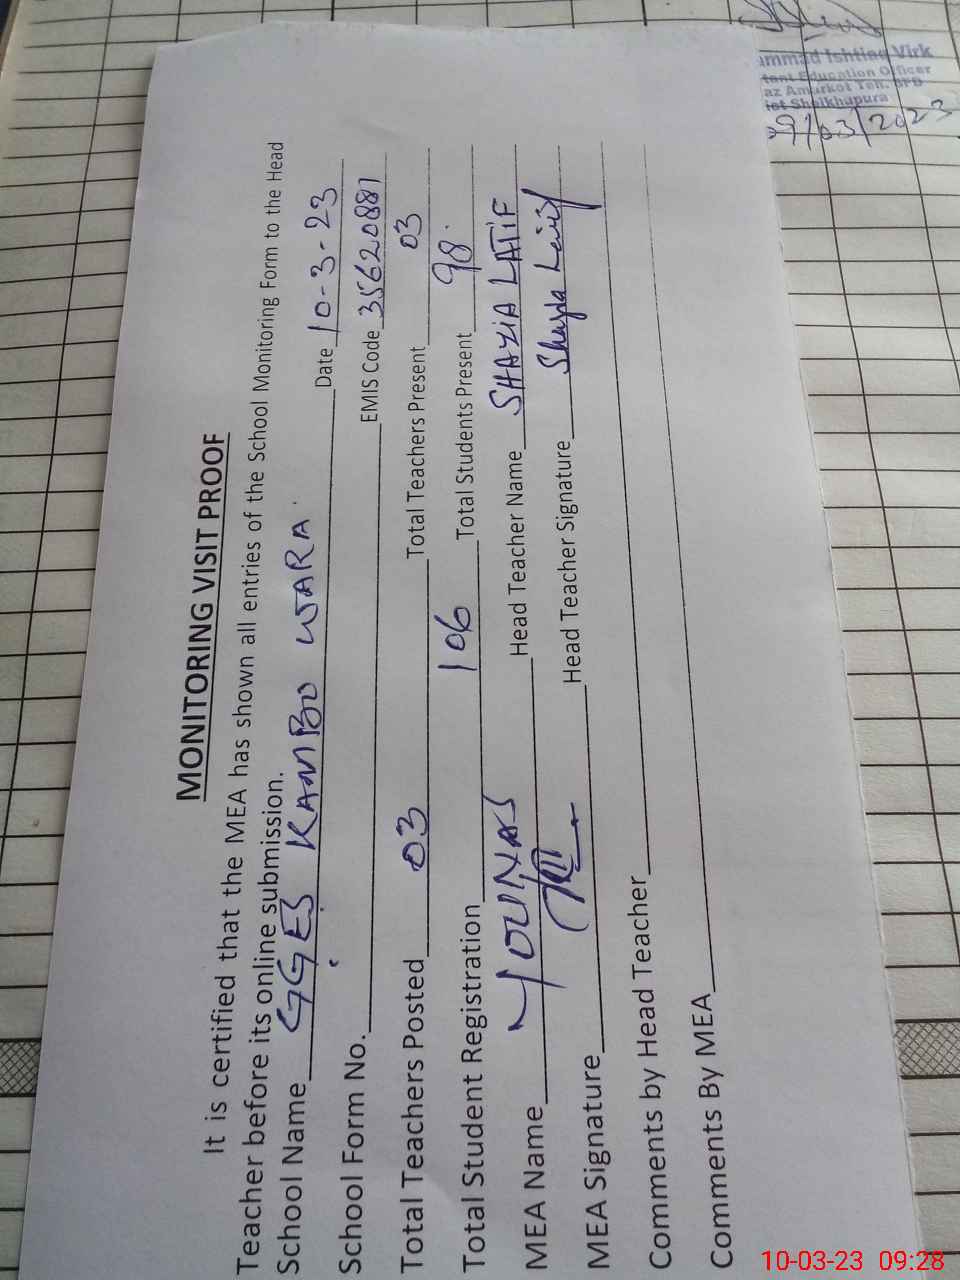 MONITORING VISIT PROOF
It is certified that the MEA has shown all entries of the School Monitoring Form to the Head
Teacher before its online submission.
School Name GGES KAMBO WARA Date 10-3-23
School Form No. EMIS Code 35620881
Total Teachers Posted 03 Total Teachers Present 03
Total Student Registration 106 Total Students Present 98
MEA Name YOUNAS Head Teacher Name SHAZIA LATIF
MEA Signature Head Teacher Signature Shazia Latif
Comments by Head Teacher
Comments By MEA
ammad Ishtiaq Virk
tant Education Officer
az Amarkot Teh. SFD
ict Sheikhupura
09/03/2023
10-03-23 09:28